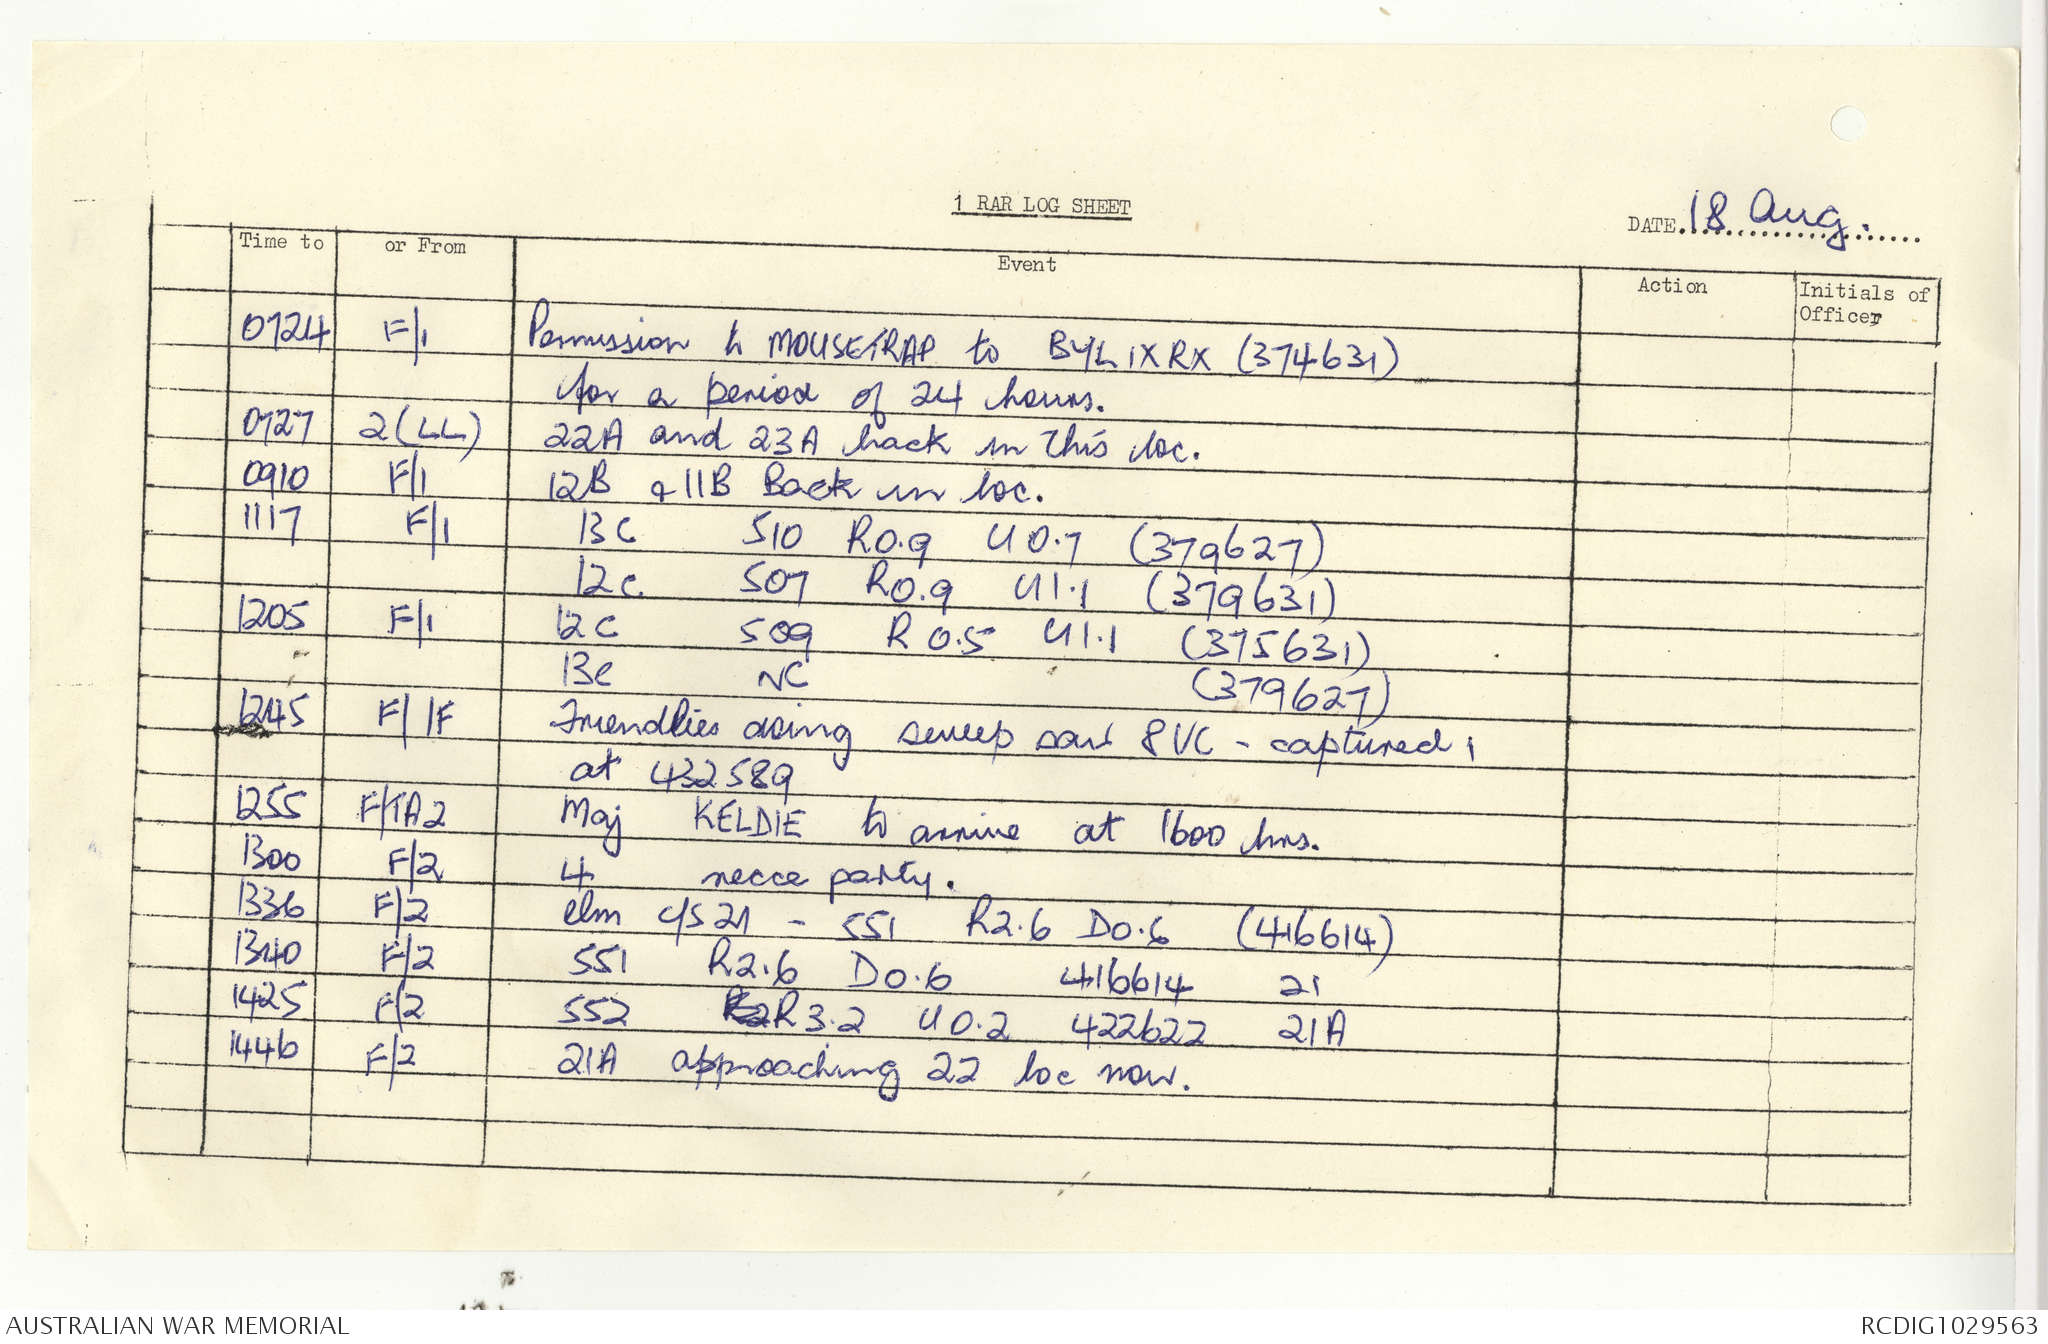 1 RAR LOG SHEET
DATE 18 Aug.
Time to or From Event Action Initials of Officer
0724 F/1 Permission to MOUSETRAP to BYL1XRX (374631)
for a period of 24 hours.
0727 2(LL) 22A and 23A back in this loc.
0910 F/1 12B & 11B Back in loc.
1117 F/1 13C 510 R0.9 U0.7 (379627)
12C 507 R0.9 U1.1 (379631)
1205 F/1 12C 509 R0.5 U1.1 (375631)
13C NC (379627)
1245 F/1F Friendlies doing sweep saw 8 VC - captured 1
at 432589
1255 F/TA2 Maj KELDIE to arrive at 1600 hrs.
1300 F/2 4 recce party.
1336 F/2 elm c/s 21 - 551 R2.6 D0.6 (416614)
1340 F/2 551 R2.6 D0.6 416614 21
1425 F/2 552 R3.2 U0.2 422622 21A
1446 F/2 21A approaching 22 loc now.
AUSTRALIAN WAR MEMORIAL RCDIG1029563